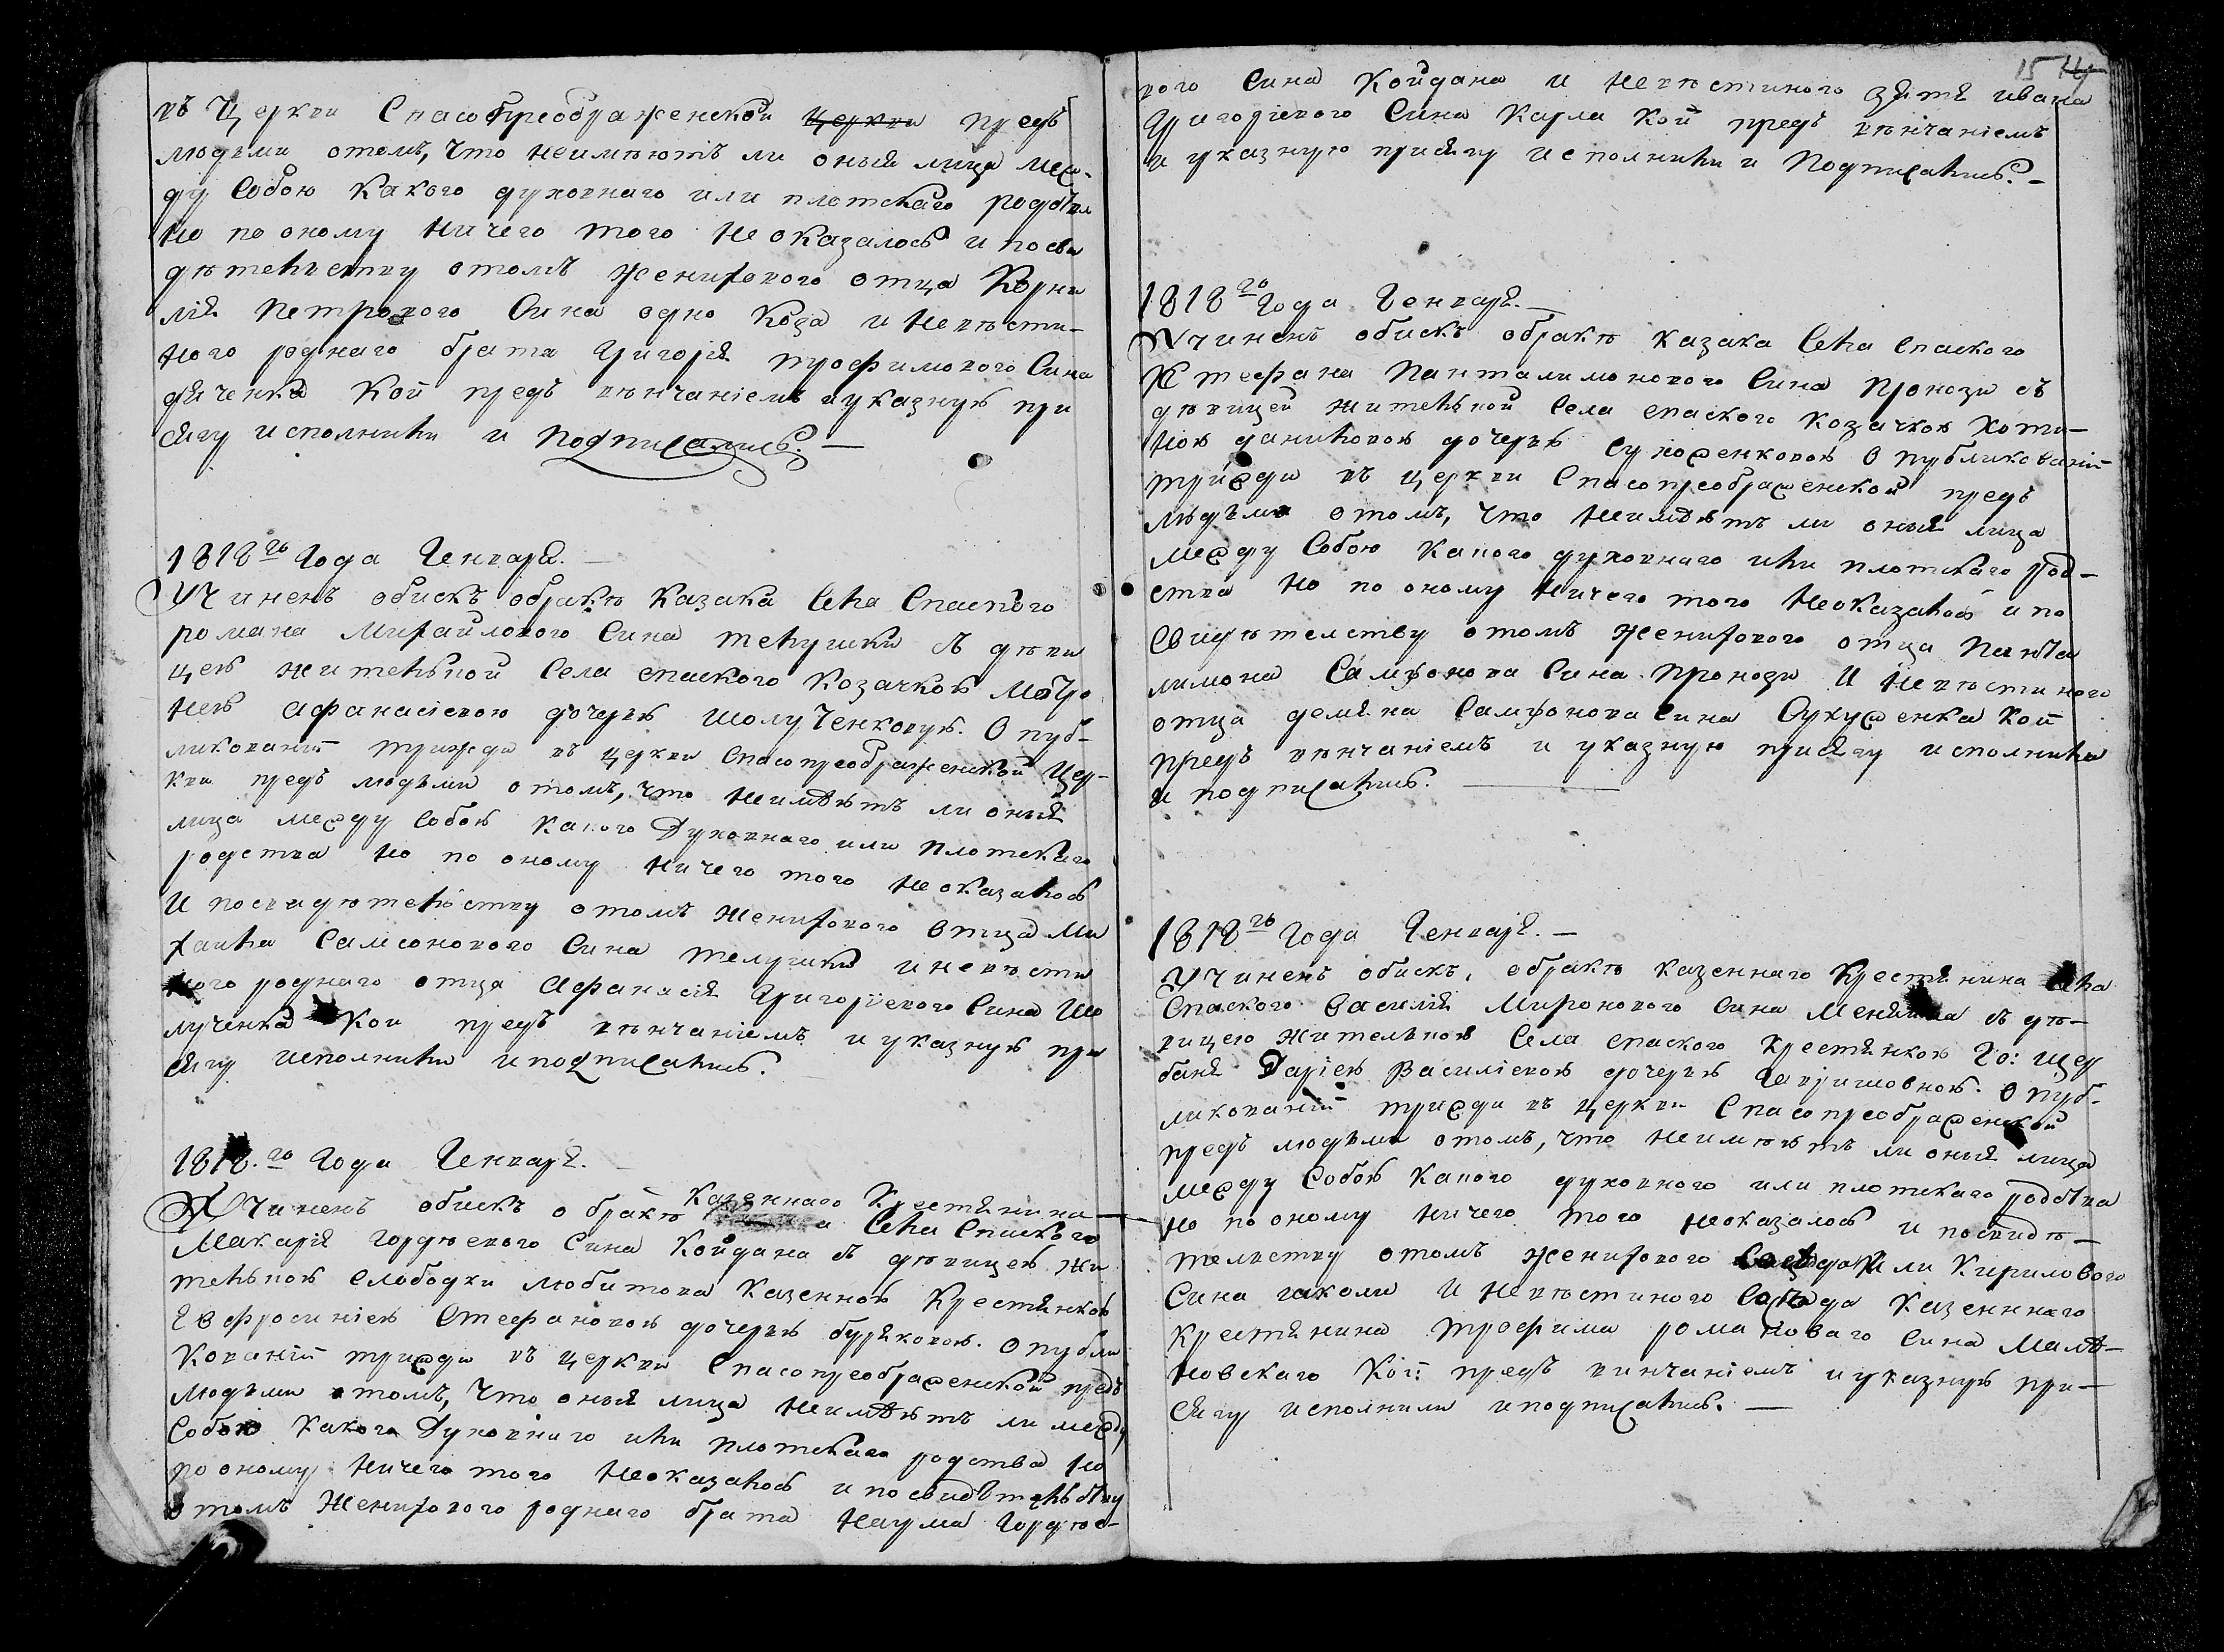 въ Церкви Спасопреображенской церкви предъ
людьми отомъ, что неимѣютъ ли оныя лица меж-
ду Собою какого духовнаго или плотскаго родства
но по оному ничего того не оказалось и по сви
дѣтельству отомъ женихового отца Корни
лія Петрового Сина одно Коза и невѣсти-
ного роднаго брата Григорія трофимового Сина
дяченка Кои предъ вѣнчаніемъ и указную при
сягу исполнили и подписались. —
1818го Года Генваря. —
Учиненъ обискъ обракѣ Казака Села Спаского
романа Михайлового Сина телушки съ дѣви
цею жительной Села спаского Козачкою Мотро
ною афанасіевою дочерью шолученковую. О пуб-
ликованій трижди въ церкви Спасопреображенской Цер-
кви предъ людьми отомъ, что неимѣютъ ли оныя
лица между Собою какого Духовнаго или Плотскаго
родства но по оному ничего того неоказалось
И посвидѣтельству отомъ женихового Отца Ми
хаила Самсонового Сина телушки и невѣсти
ного роднаго отца Афанасія Григоріевого Сина Шо
лученка Кои предъ вѣнчаніемъ и указную при
сягу исполнили и подписались.
1818.го Года Генваря. —
Учиненъ обискъ о бракѣ казеннаго Крестянина
Села Спаского
Макарія гордѣевого Сина Койдана съ дѣвицею жи
тельною слободки любитова Казенною Крестянкою
Евфросиніею Стефановою дочерью буряковою. Опубли
кованій трижди въ церкви Спасопреображенской предъ
людьми отомъ, что оныя лица неимѣютъ ли между
Собою какого Духовнаго или плотскаго родства но
по оному ничего того неоказалось и по свидѣтельству
отомъ женихового роднаго брата Наума Гордѣе-
15 14
вого Сина Койдана и невѣстиного зятя ивана
Григоріевого Сина Каула Кои предъ вѣнчаніемъ
и указную присягу исполнили и Подписались. —
1818го Года Генваря. —
Учиненъ обискъ обракѣ казака Села Спаского
Стефана Панталимонового Сина Пронози съ
дѣвицей жительной Села спаского козачкою Хоти-
ною даниловою дочерью Сукошенковою О публикованій
трижди въ церкви Спасопреображенской предъ
людьми отомъ, что неимѣютъ ли оныя лица
между Собою какого духовнаго или плотскаго род-
ства но по оному ничего того неоказалось и по
Свидѣтелству отомъ женихового отца Панта
лимона Самфонова Сина Пронози И невѣстиного
отца демяна Самфонова Сина Кои
предъ вѣнчаніемъ и указную присягу исполнили
и подписались. —
1818го Года Генваря. —
Учиненъ обискъ, обракѣ казеннаго Крестянина Села
Спаского Василія Миронового Сина съ дѣ-
вицею жительною Села спаского крестянкою Го: Щер
баня Даріею Василіевою дочерью. О пуб-
ликованій трижди въ церкви Спасопреображенской
предъ людьми отомъ, что неимѣютъ ли оныя лица
между Собою какого духовного или плотскаго родства
но по оному ничего того неоказалось и посвидѣ-
телству отомъ женихового Сосѣда Кирилового
Сина гаколи И невѣстиного Сосѣда казеннаго
крестянина трофима романоваго Сина Мали-
новскаго Кои предъ винчаніемъ и указную при-
сягу исполнили и подписались. —